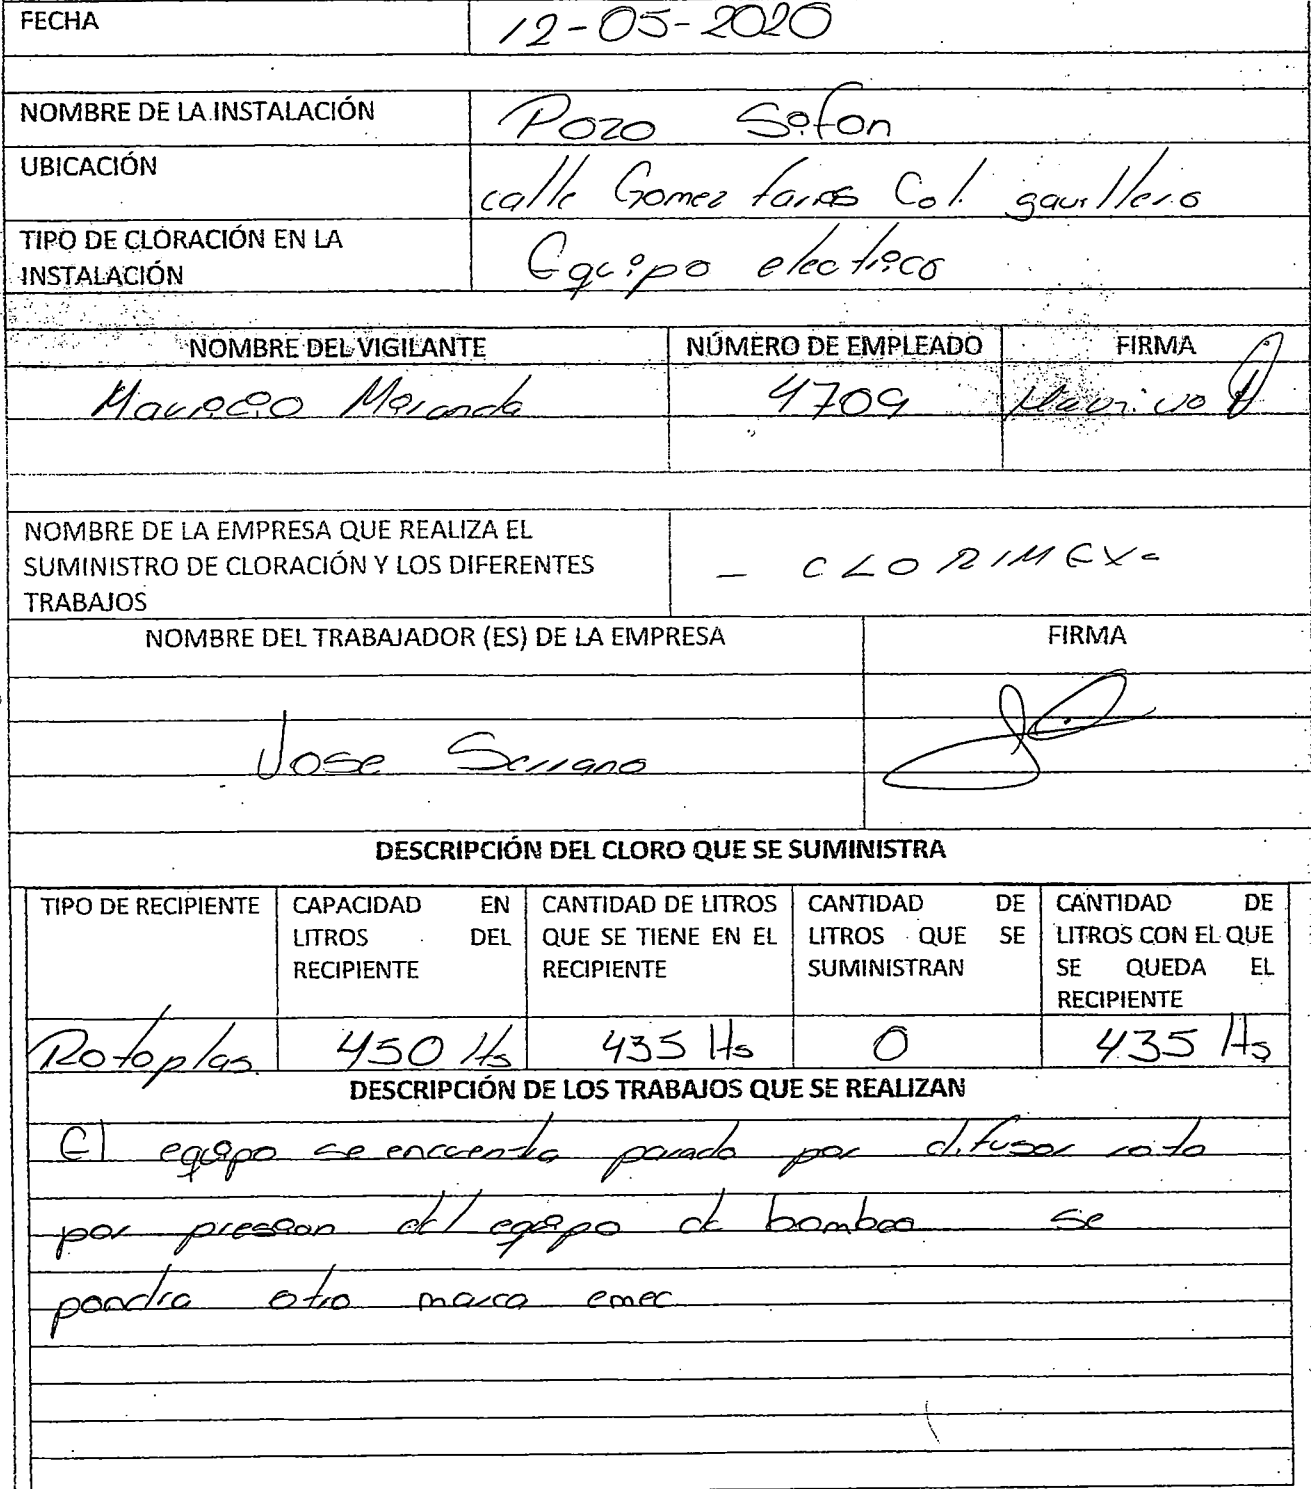 FECHA 12-05-2020
NOMBRE DE LA INSTALACIÓN Pozo Sifon
UBICACIÓN calle Gomez farias Col. gavillero
TIPO DE CLORACIÓN EN LA
INSTALACIÓN Equipo electrico
NOMBRE DEL VIGILANTE NÚMERO DE EMPLEADO FIRMA
Mauricio Miranda 4709 Mauricio
NOMBRE DE LA EMPRESA QUE REALIZA EL
SUMINISTRO DE CLORACIÓN Y LOS DIFERENTES
TRABAJOS
- CLORIMEX-
NOMBRE DEL TRABAJADOR (ES) DE LA EMPRESA FIRMA
Jose Serrano
DESCRIPCIÓN DEL CLORO QUE SE SUMINISTRA
TIPO DE RECIPIENTE
CAPACIDAD EN
LITROS DEL
RECIPIENTE
CANTIDAD DE LITROS
QUE SE TIENE EN EL
RECIPIENTE
CANTIDAD DE
LITROS QUE SE
SUMINISTRAN
CANTIDAD DE
LITROS CON EL QUE
SE QUEDA EL
RECIPIENTE
Rotoplas 450 lts 435 lts 0 435 lts
DESCRIPCIÓN DE LOS TRABAJOS QUE SE REALIZAN
El equipo se encuentra parado por difusor roto
por presion del equipo de bombeo se
pondra otro marca emec